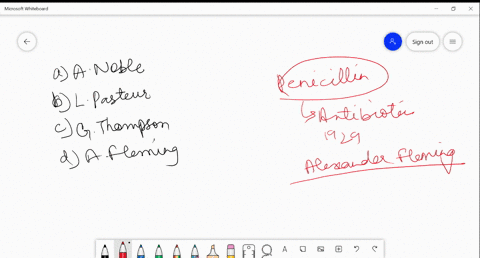 Microsoft Whiteboard
Sign out
a) A. Noble
b) L. Pasteur
c) G. Thompson
d) A. Fleming
Penicillin
Antibiotic
1929
Alexander Fleming